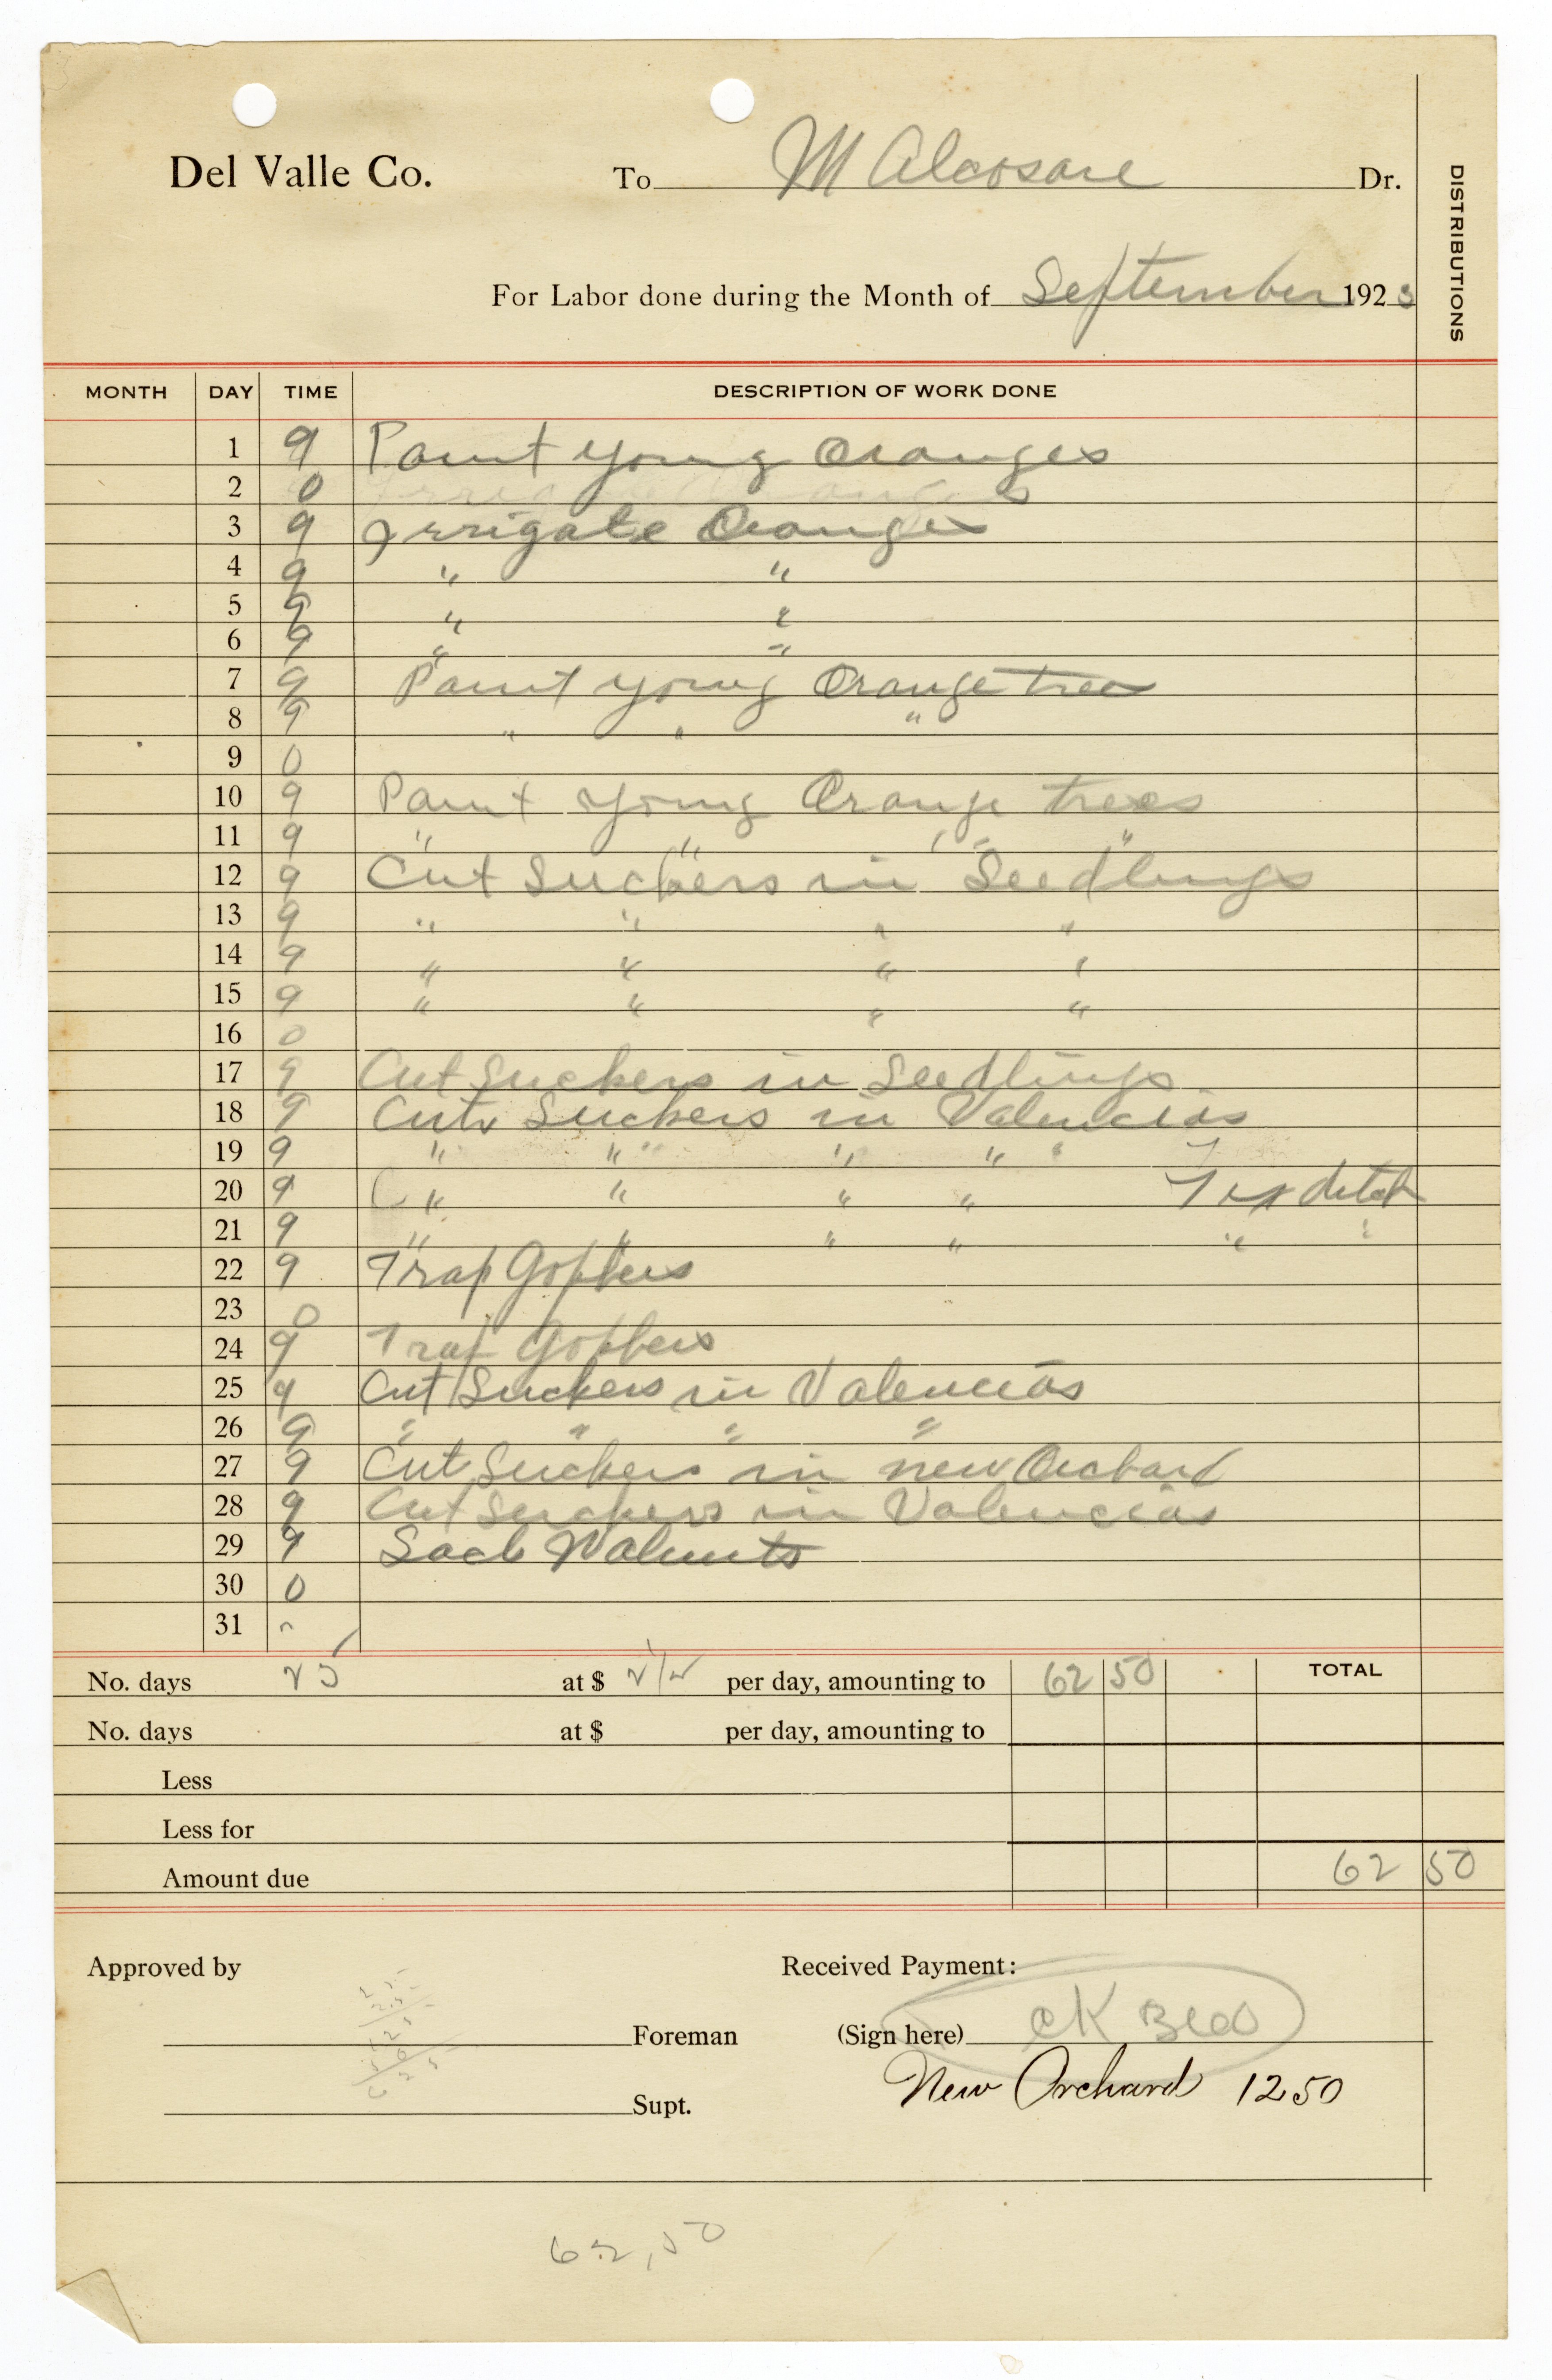 Del Valle Co. To M Alcosare Dr.
DISTRIBUTIONS
For Labor done during the Month of September 1923
MONTH DAY TIME DESCRIPTION OF WORK DONE
1 9 Paint young Oranges
2 0
3 9 Irrigate Oranges
4 9 " "
5 9 " "
6 9 " "
7 9 Paint young Orange trees
8 9 " " "
9 0
10 9 Paint young Orange trees
11 9 " " " "
12 9 Cut Suckers in Seedlings
13 9 " " " "
14 9 " " " "
15 9 " " " "
16 0
17 9 Cut Suckers in Seedlings
18 9 Cut Suckers in Valencias
19 9 " " " "
20 9 " " " " Fix ditch
21 9 " " " " " "
22 9 Trap Gophers
23 0
24 9 Trap Gophers
25 9 Cut Suckers in Valencias
26 9 " " " "
27 9 Cut Suckers in new Orchard
28 9 Cut Suckers in Valencias
29 9 Sack Walnuts
30 0
31
No. days 25 at $ 2 1/2 per day, amounting to 62 50 TOTAL
No. days at $ per day, amounting to
Less
Less for
Amount due 62 50
Approved by Received Payment:
Foreman (Sign here) CK
Supt. New Orchard 1250
62,50